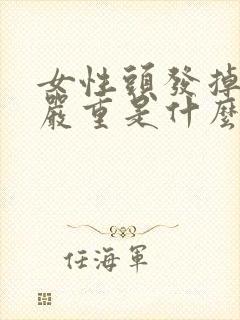 女性頭發掉
嚴重是什麼
任海軍